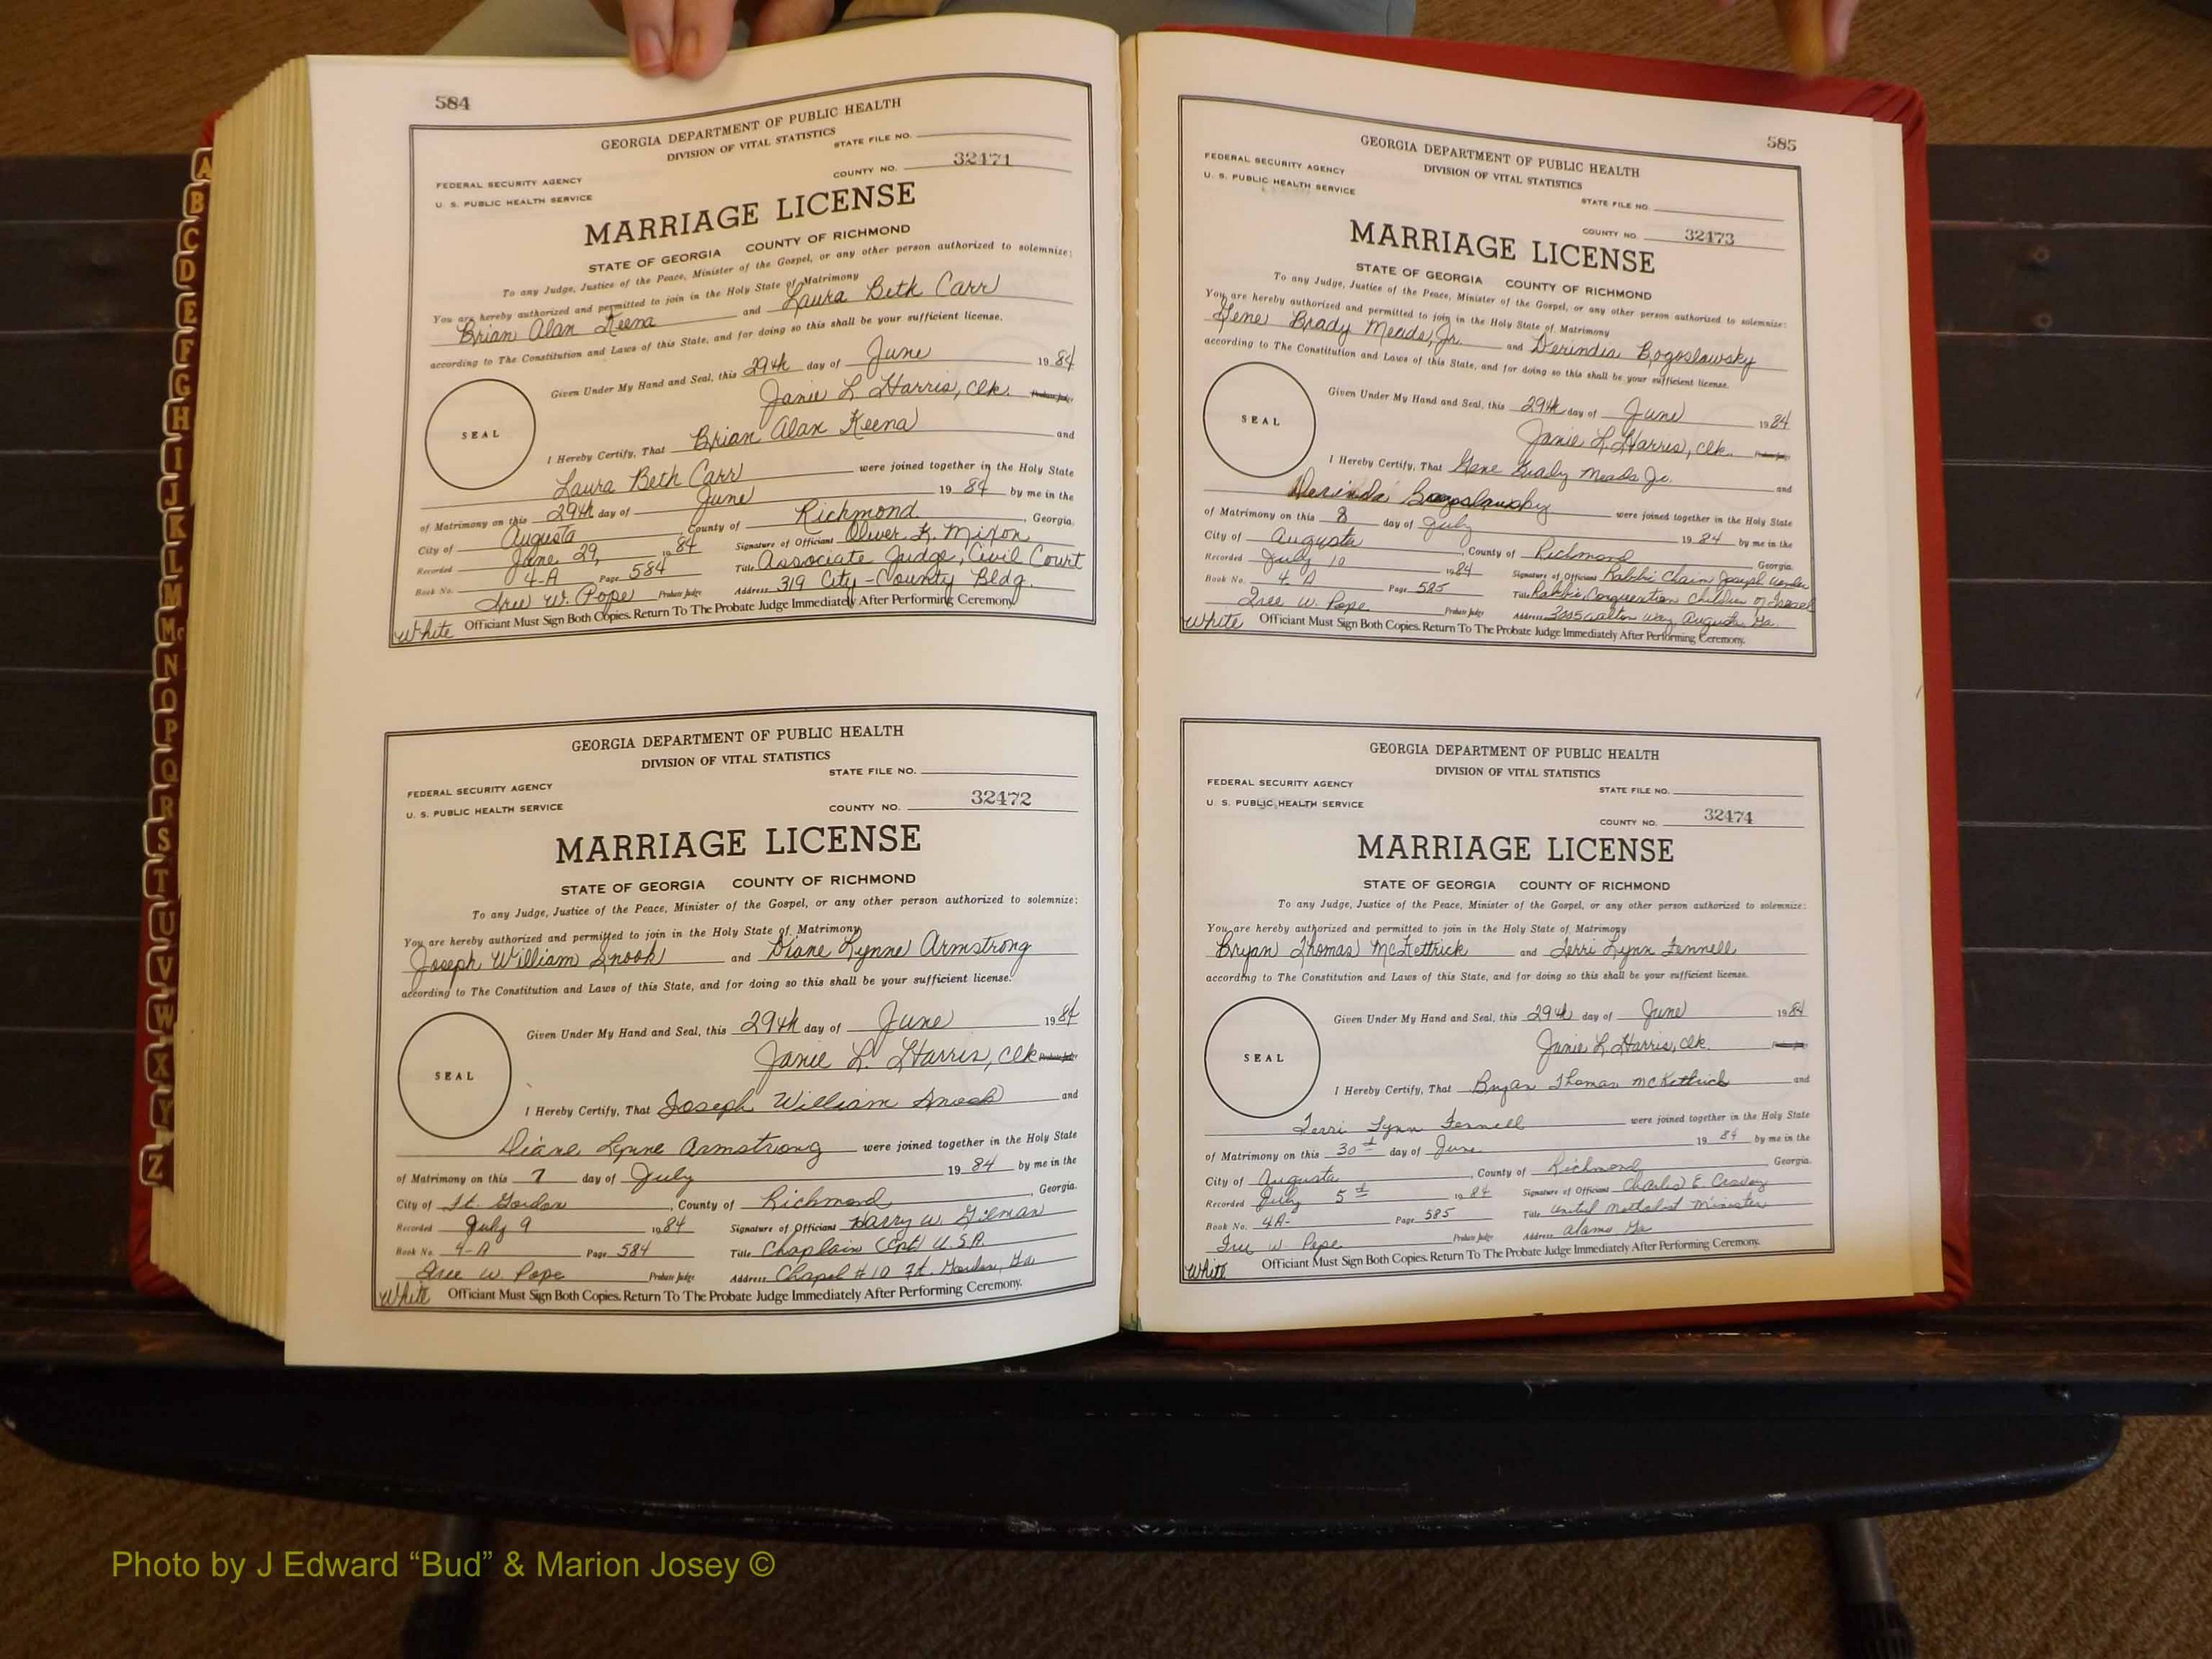 584
GEORGIA DEPARTMENT OF PUBLIC HEALTH
DIVISION OF VITAL STATISTICS
STATE FILE NO.
FEDERAL SECURITY AGENCY
U. S. PUBLIC HEALTH SERVICE
COUNTY NO. 32471
MARRIAGE LICENSE
STATE OF GEORGIA COUNTY OF RICHMOND
To any Judge, Justice of the Peace, Minister of the Gospel, or any other person authorized to solemnize:
You are hereby authorized and permitted to join in the Holy State of Matrimony
Brian Alan Keena and Laura Beth Carr
according to The Constitution and Laws of this State, and for doing so this shall be your sufficient license.
Given Under My Hand and Seal, this 29th day of June 1984
Janie L. Harris, Clk. Probate Judge
SEAL
I Hereby Certify, That Brian Alan Keena and
Laura Beth Carr were joined together in the Holy State
of Matrimony on this 29th day of June 1984 by me in the
City of Augusta, County of Richmond, Georgia.
Recorded June 29, 1984 Signature of Official Oliver K. Mixon
Book No. 4-A Page 584 Title Associate Judge, Civil Court
Iree W. Pope Probate Judge Address 319 City-County Bldg.
White Officiant Must Sign Both Copies. Return To The Probate Judge Immediately After Performing Ceremony.
GEORGIA DEPARTMENT OF PUBLIC HEALTH
DIVISION OF VITAL STATISTICS
STATE FILE NO.
FEDERAL SECURITY AGENCY
U. S. PUBLIC HEALTH SERVICE
COUNTY NO. 32472
MARRIAGE LICENSE
STATE OF GEORGIA COUNTY OF RICHMOND
To any Judge, Justice of the Peace, Minister of the Gospel, or any other person authorized to solemnize:
You are hereby authorized and permitted to join in the Holy State of Matrimony
Joseph William Snook and Diane Lynne Armstrong
according to The Constitution and Laws of this State, and for doing so this shall be your sufficient license.
Given Under My Hand and Seal, this 29th day of June 1984
Janie L. Harris, Clk Probate Judge
SEAL
I Hereby Certify, That Joseph William Snook and
Diane Lynne Armstrong were joined together in the Holy State
of Matrimony on this 7 day of July 1984 by me in the
City of Ft. Gordon, County of Richmond, Georgia.
Recorded July 9 1984 Signature of Official Harry W. Gilman
Book No. 4-A Page 584 Title Chaplain (Cpt) U.S.A.
Iree W Pope Probate Judge Address Chapel #10 Ft. Gordon, Ga
White Officiant Must Sign Both Copies. Return To The Probate Judge Immediately After Performing Ceremony.
585
GEORGIA DEPARTMENT OF PUBLIC HEALTH
DIVISION OF VITAL STATISTICS
FEDERAL SECURITY AGENCY
U. S. PUBLIC HEALTH SERVICE
STATE FILE NO.
COUNTY NO. 32473
MARRIAGE LICENSE
STATE OF GEORGIA COUNTY OF RICHMOND
To any Judge, Justice of the Peace, Minister of the Gospel, or any other person authorized to solemnize:
You are hereby authorized and permitted to join in the Holy State of Matrimony
Gene Brady Meads, Jr. and Derindia Bogoslawsky
according to The Constitution and Laws of this State, and for doing so this shall be your sufficient license.
Given Under My Hand and Seal, this 29th day of June 1984
Janie L. Harris, Clk. Probate Judge
SEAL
I Hereby Certify, That Gene Brady Meads Jr. and
Derinda Bogoslawsky were joined together in the Holy State
of Matrimony on this 8 day of July 1984 by me in the
City of Augusta, County of Richmond Georgia.
Recorded July 10 1984 Signature of Official Rabbi Chaim Joseph
Book No. 4 A Page 585 Title Rabbi, Congregation Children of Israel
Iree W. Pope Probate Judge Address 3005 Walton Way Augusta, Ga.
White Officiant Must Sign Both Copies. Return To The Probate Judge Immediately After Performing Ceremony.
GEORGIA DEPARTMENT OF PUBLIC HEALTH
DIVISION OF VITAL STATISTICS
STATE FILE NO.
FEDERAL SECURITY AGENCY
U. S. PUBLIC HEALTH SERVICE
COUNTY NO. 32474
MARRIAGE LICENSE
STATE OF GEORGIA COUNTY OF RICHMOND
To any Judge, Justice of the Peace, Minister of the Gospel, or any other person authorized to solemnize:
You are hereby authorized and permitted to join in the Holy State of Matrimony
Bryan Thomas McKettrick and Terri Lynn Fennell
according to The Constitution and Laws of this State, and for doing so this shall be your sufficient license.
Given Under My Hand and Seal, this 29th day of June 1984
Janie L. Harris, Clk. Probate Judge
SEAL
I Hereby Certify, That Bryan Thomas McKettrick and
Terri Lynn Fennell were joined together in the Holy State
of Matrimony on this 30th day of June 1984 by me in the
City of Augusta, County of Richmond, Georgia.
Recorded July 5th 1984 Signature of Official Charles E Cravey
Book No. 4A- Page 585 Title United Methodist Minister
Iree W Pope Probate Judge Address Alamo Ga
White Officiant Must Sign Both Copies. Return To The Probate Judge Immediately After Performing Ceremony.
A
B
C
D
E
F
G
H
I
J
K
L
M
Mc
N
O
P
Q
R
S
T
U
V
W
X
Y
Z
Photo by J Edward “Bud” & Marion Josey ©